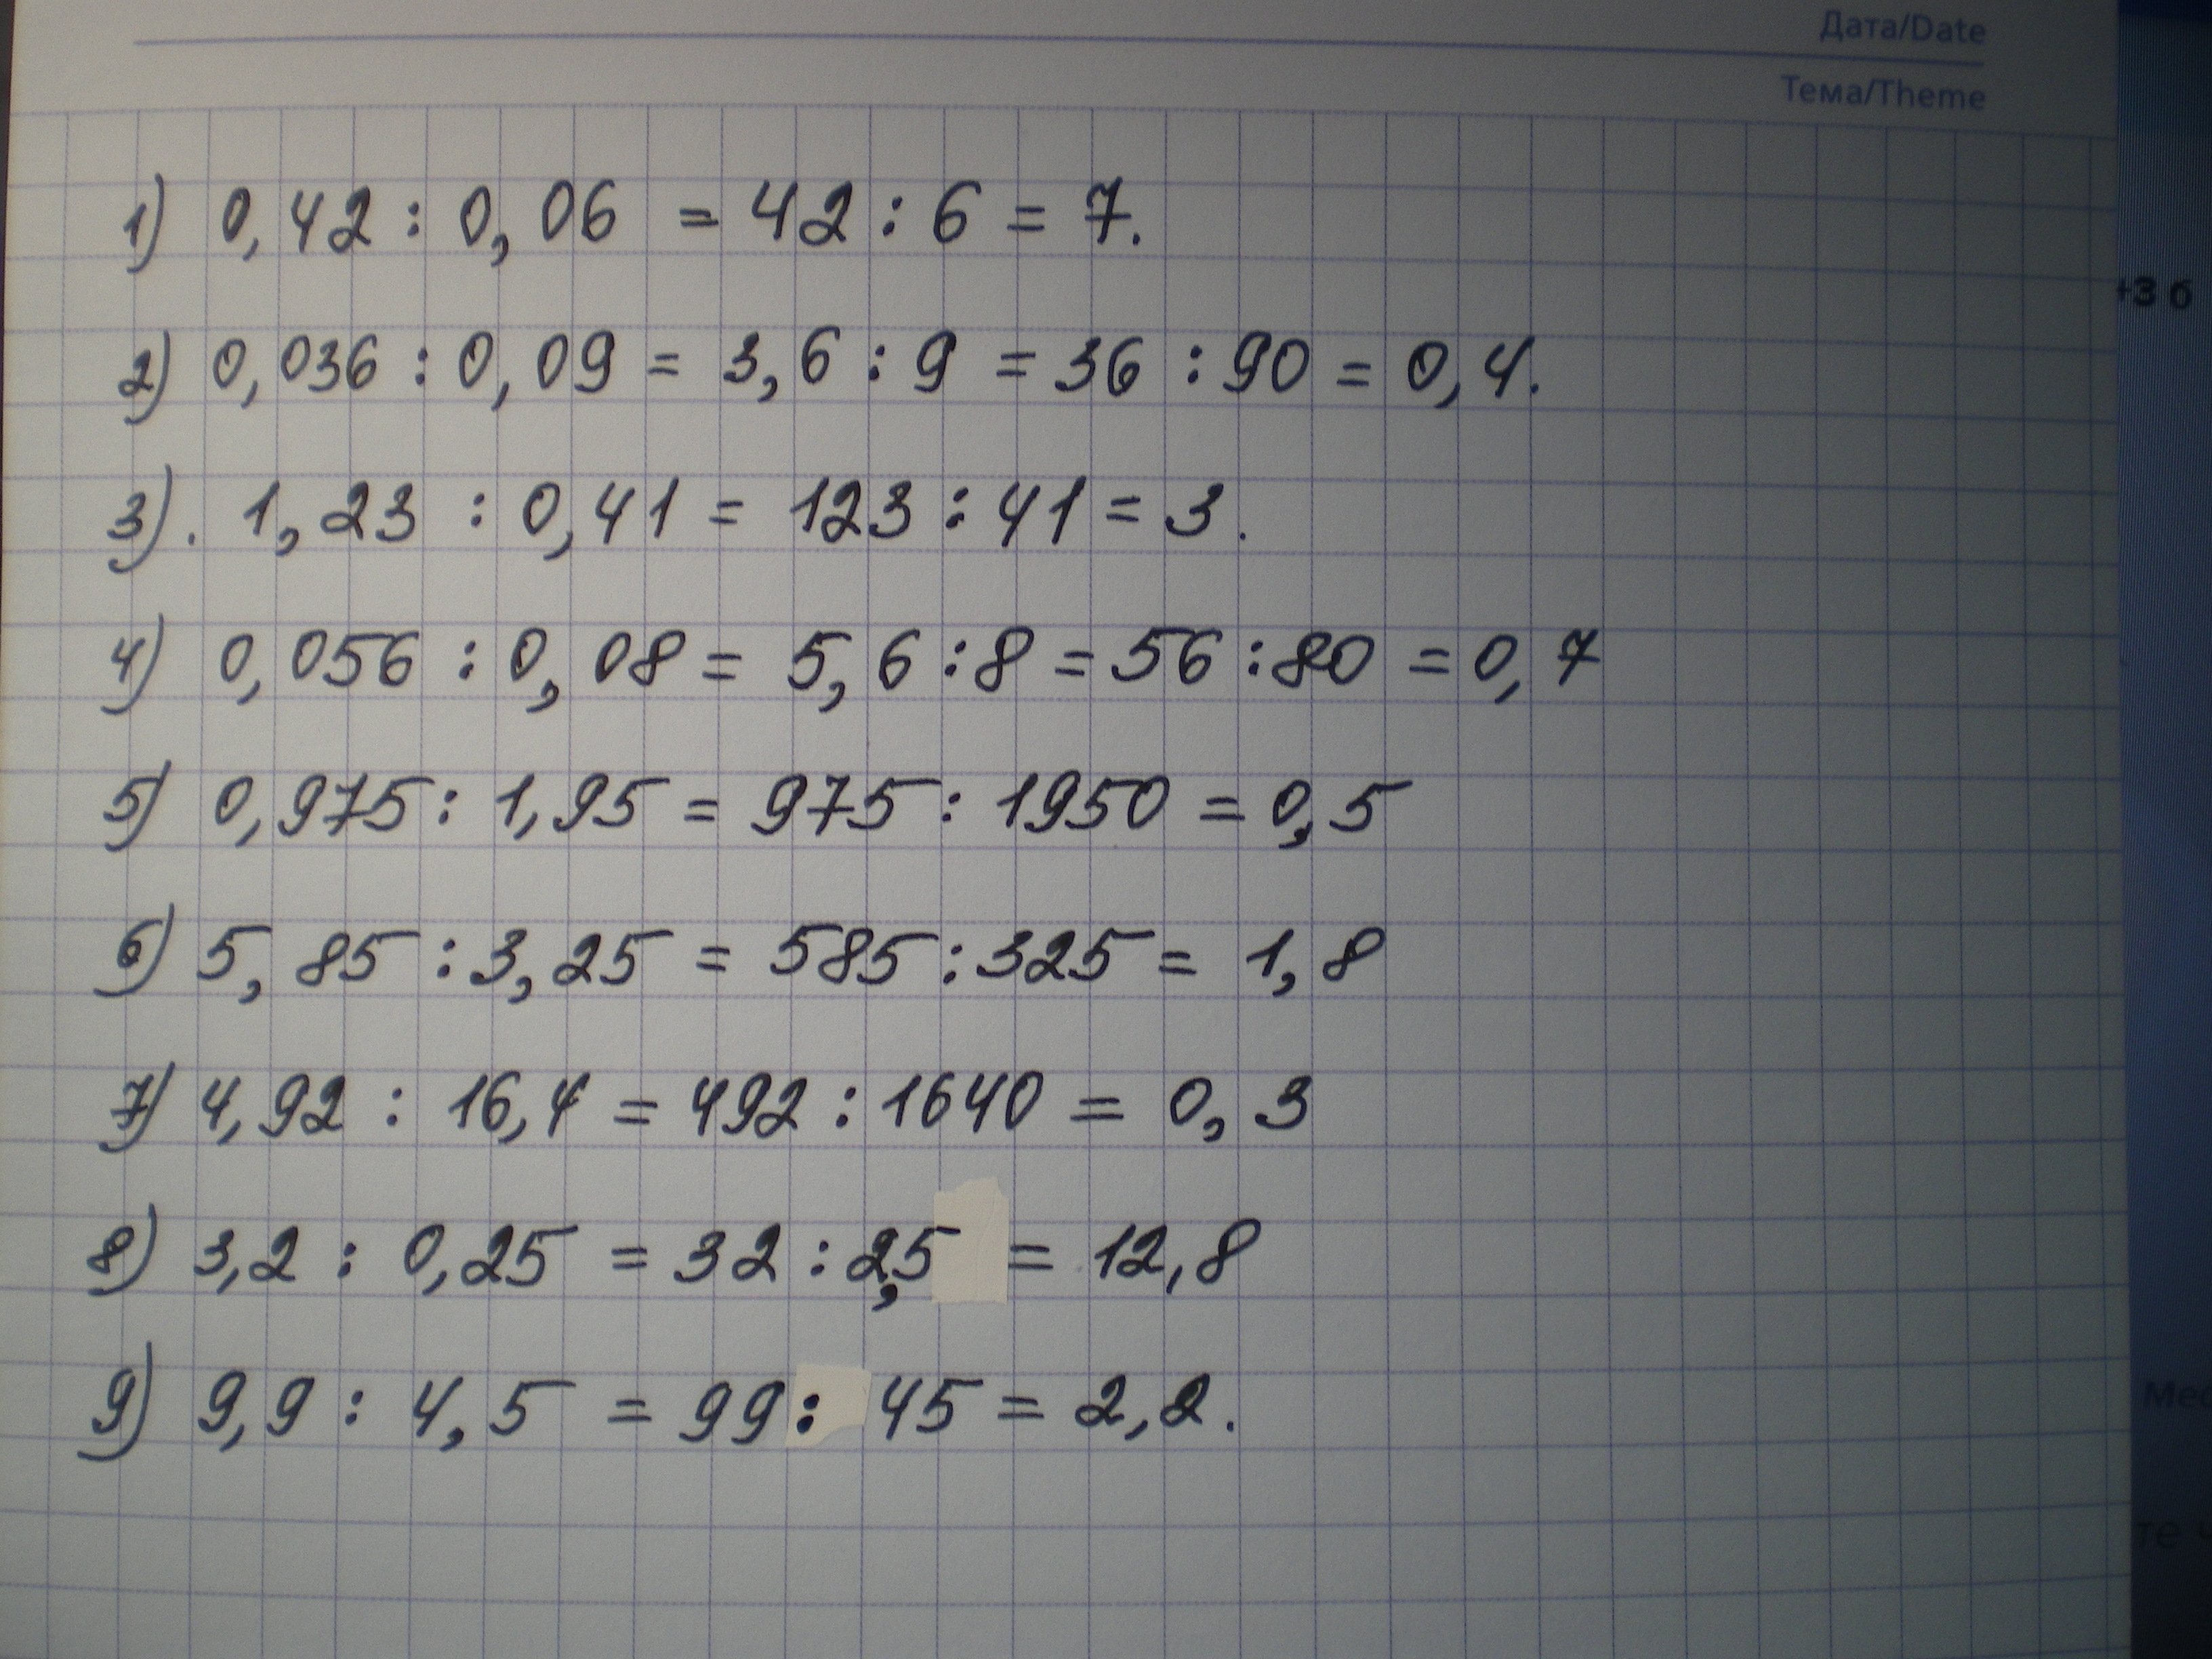 Дата/Date
Тема/Theme
1) 0,42 : 0,06 = 42 : 6 = 7.
+3 б
2) 0,036 : 0,09 = 3,6 : 9 = 36 : 90 = 0,4.
3). 1,23 : 0,41 = 123 : 41 = 3.
4) 0,056 : 0,08 = 5,6 : 8 = 56 : 80 = 0,7
5) 0,975 : 1,95 = 975 : 1950 = 0,5
6) 5,85 : 3,25 = 585 : 325 = 1,8
7) 4,92 : 16,4 = 492 : 1640 = 0,3
8) 3,2 : 0,25 = 32 : 2,5 = 12,8
9) 9,9 : 4,5 = 99 : 45 = 2,2.